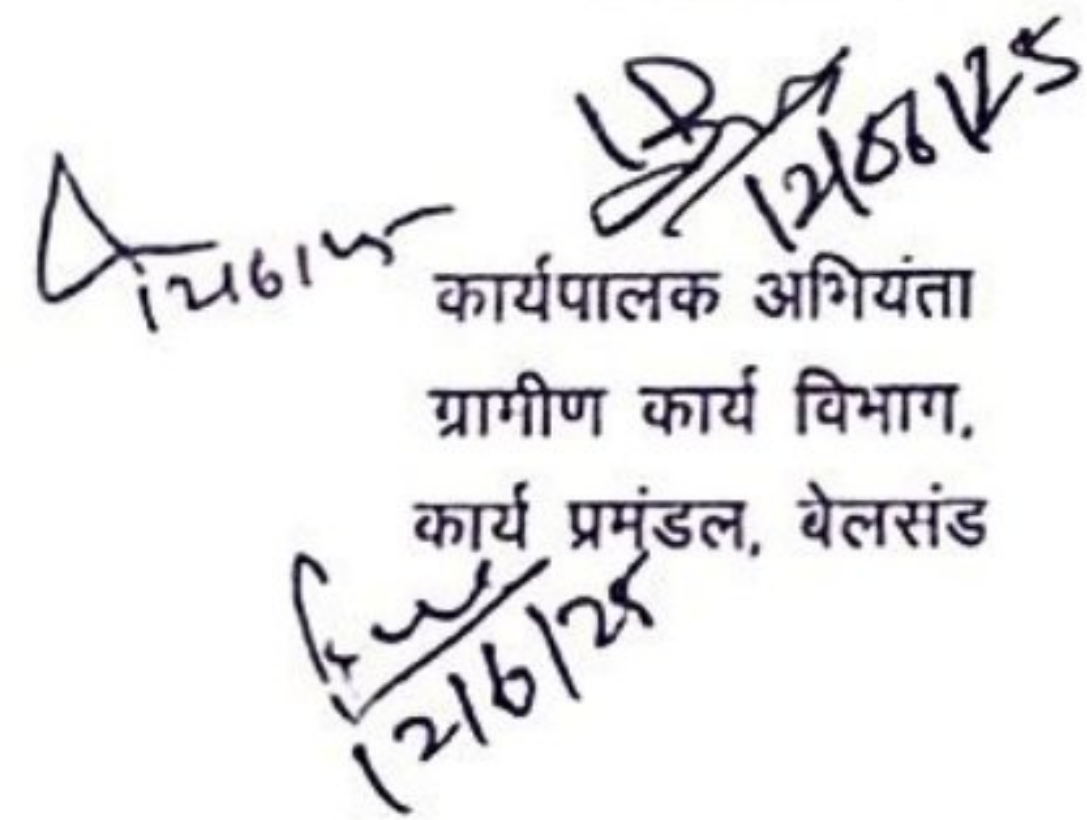 12/06/25
12/6/25
कार्यपालक अभियंता
ग्रामीण कार्य विभाग,
कार्य प्रमंडल, बेलसंड
12/6/25